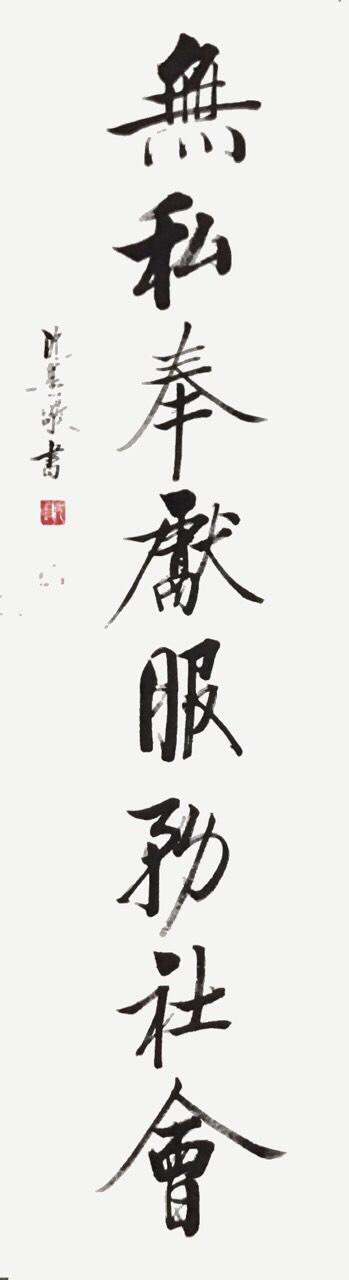 無私奉獻服務社會
書